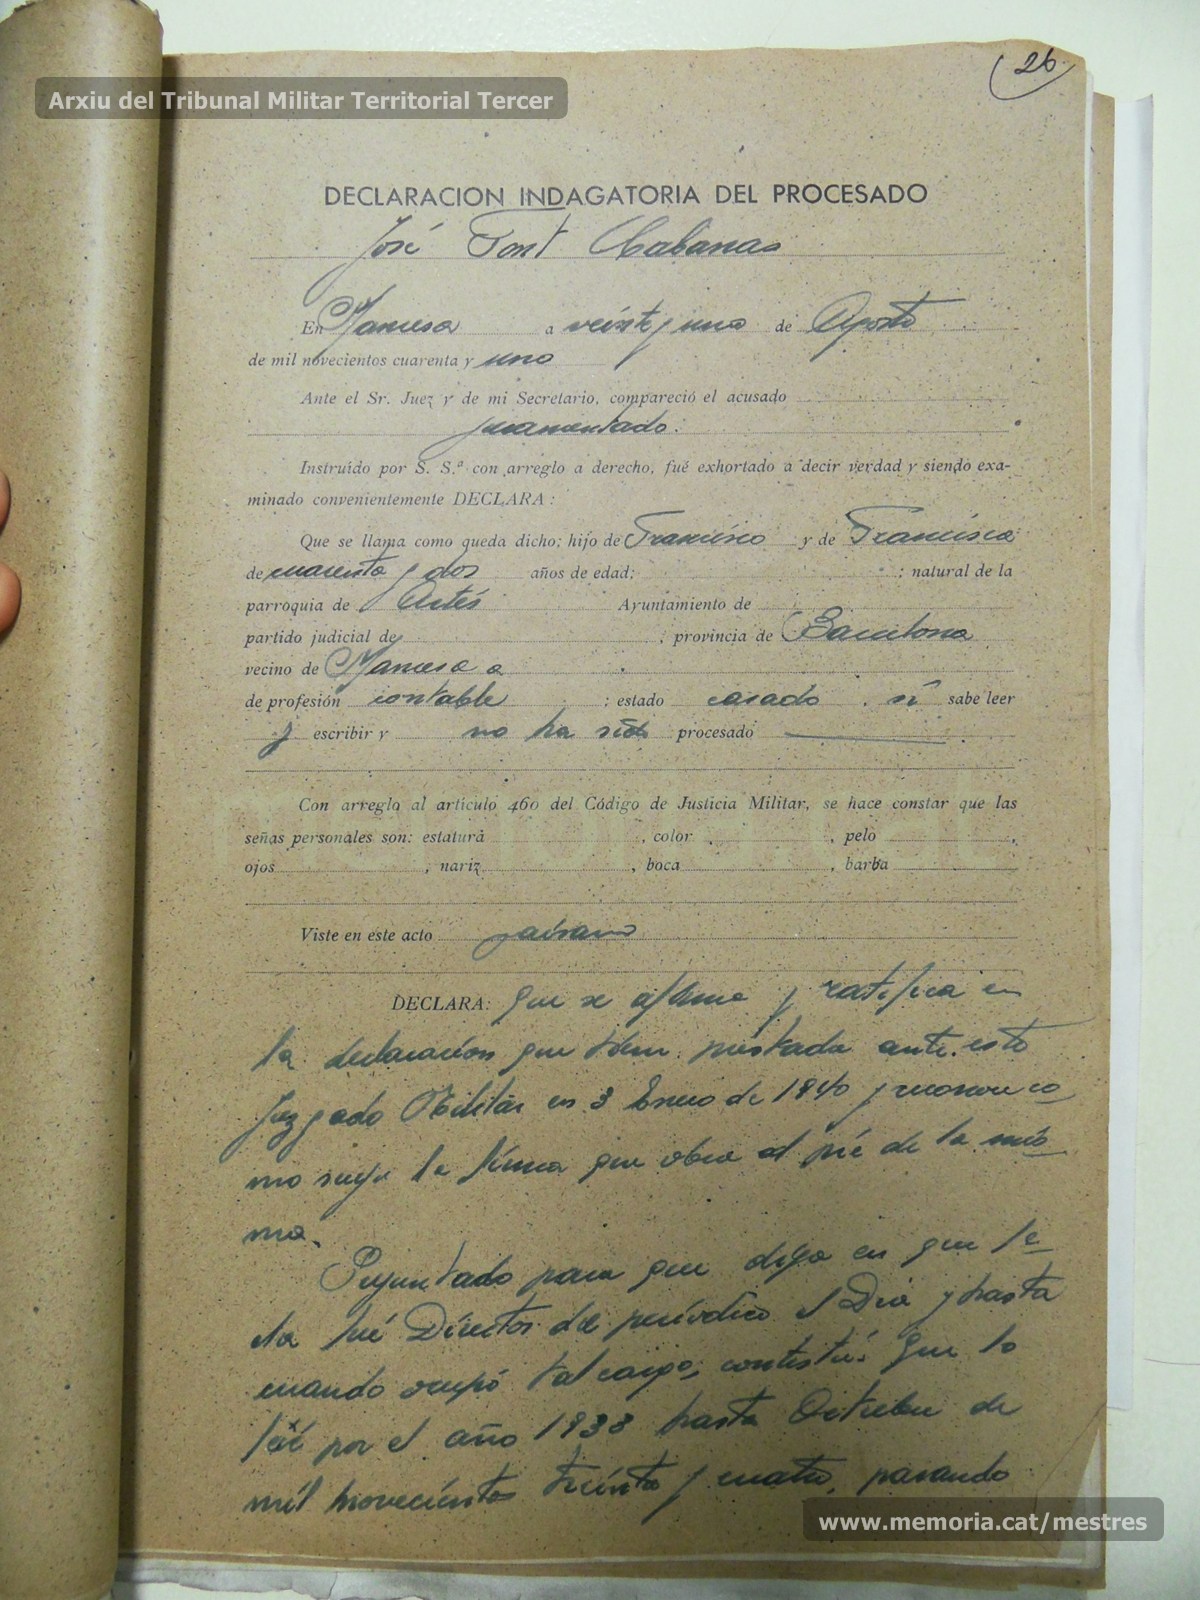 26
Arxiu del Tribunal Militar Territorial Tercer
DECLARACION INDAGATORIA DEL PROCESADO
José Font Cabanas
En Manresa a veinte y uno de Agosto
de mil novecientos cuarenta y uno
Ante el Sr. Juez y de mi Secretario, compareció el acusado
juramentado.
Instruído por S. S.ª con arreglo a derecho, fué exhortado a decir verdad y siendo exa-
minado convenientemente DECLARA:
Que se llama como queda dicho; hijo de Francisco y de Francisca
de cuarenta y dos años de edad; ; natural de la
parroquia de Artés Ayuntamiento de
partido judicial de , provincia de Barcelona
vecino de Manresa
de profesión contable ; estado casado . si sabe leer
y escribir y no ha sido procesado
Con arreglo al artículo 460 del Código de Justicia Militar, se hace constar que las
señas personales son: estatura , color , pelo ,
ojos , nariz , boca , barba
Viste en este acto paisano
DECLARA: Que se afirma y ratifica en
la declaración que tiene prestada ante este
Juzgado Militar en 3 Enero de 1940 y reconoce co
mo suya la firma que obra al pié de la mis
ma.
Preguntado para que diga en que fe
cha fué Director del periódico el Dia y hasta
cuando ocupó tal cargo, contestó: Que lo
fué por el año 1933 hasta Octubre de
mil novecientos treinta y cuatro, pasando
www.memoria.cat/mestres